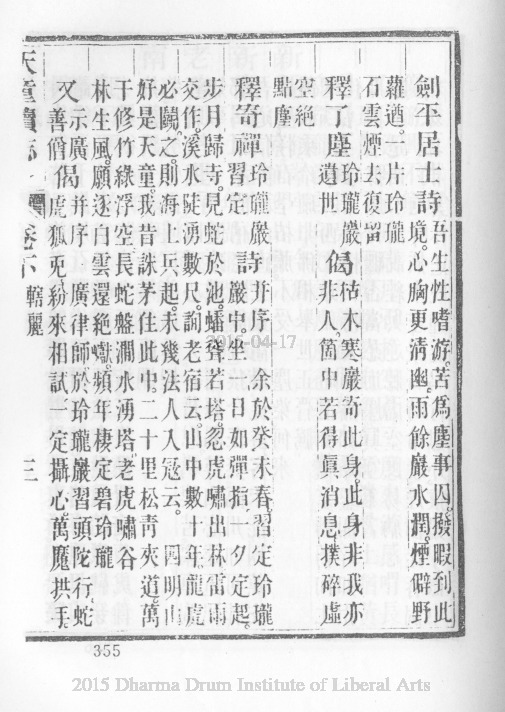 劍平居士詩 吾生性嗜游苦爲塵事囚撥暇到此
境心胸更清幽雨餘巖水潤煙僻野
蘿遒一片玲瓏
石雲煙去復留
釋了塵 玲瓏巖偈 枯木寒巖寄此身此身非我亦
遺世 非人箇中若得眞消息撲碎虛
空絶
點塵
釋寄禪 玲瓏巖詩 并序 余於癸未春習定玲瓏
習定 巖中坐一日如彈指一夕定起
步月歸寺見蛇於池蟠聳若塔忽虎嘯出林雷雨
交作溪水陡湧數尺詢老宿云山中數年龍虎
必鬬之則海上兵起未幾法人入寇云 四明山
好是天童我昔誅茅住此中二十里松靑夾道萬
干修竹綠浮空長蛇盤澗水湧塔老虎嘯谷
林生風願逐白雲還絶巘頻年棲定碧玲瓏
又示廣 偈 并序 廣律師於玲瓏巖習頭陀行蛇
善僧 虎狐兎紛來相試 定攝心萬魔拱手
天童續志 卷下 轄麗 三
355
2016-04-17
2015 Dharma Drum Institute of Liberal Arts